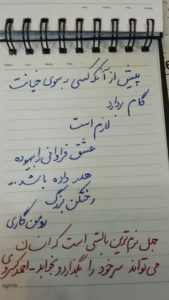 پیش از آنکه کسی به سوی خیانت
گام بردارد
لازم است
عشق فراوانی را بیهوده
هدر داده باشد...
رومن گاری
جهل نرم‌ترین بالشی است که انسان
می‌تواند سر خود را بگذارد و بخوابد - احمد کسروی